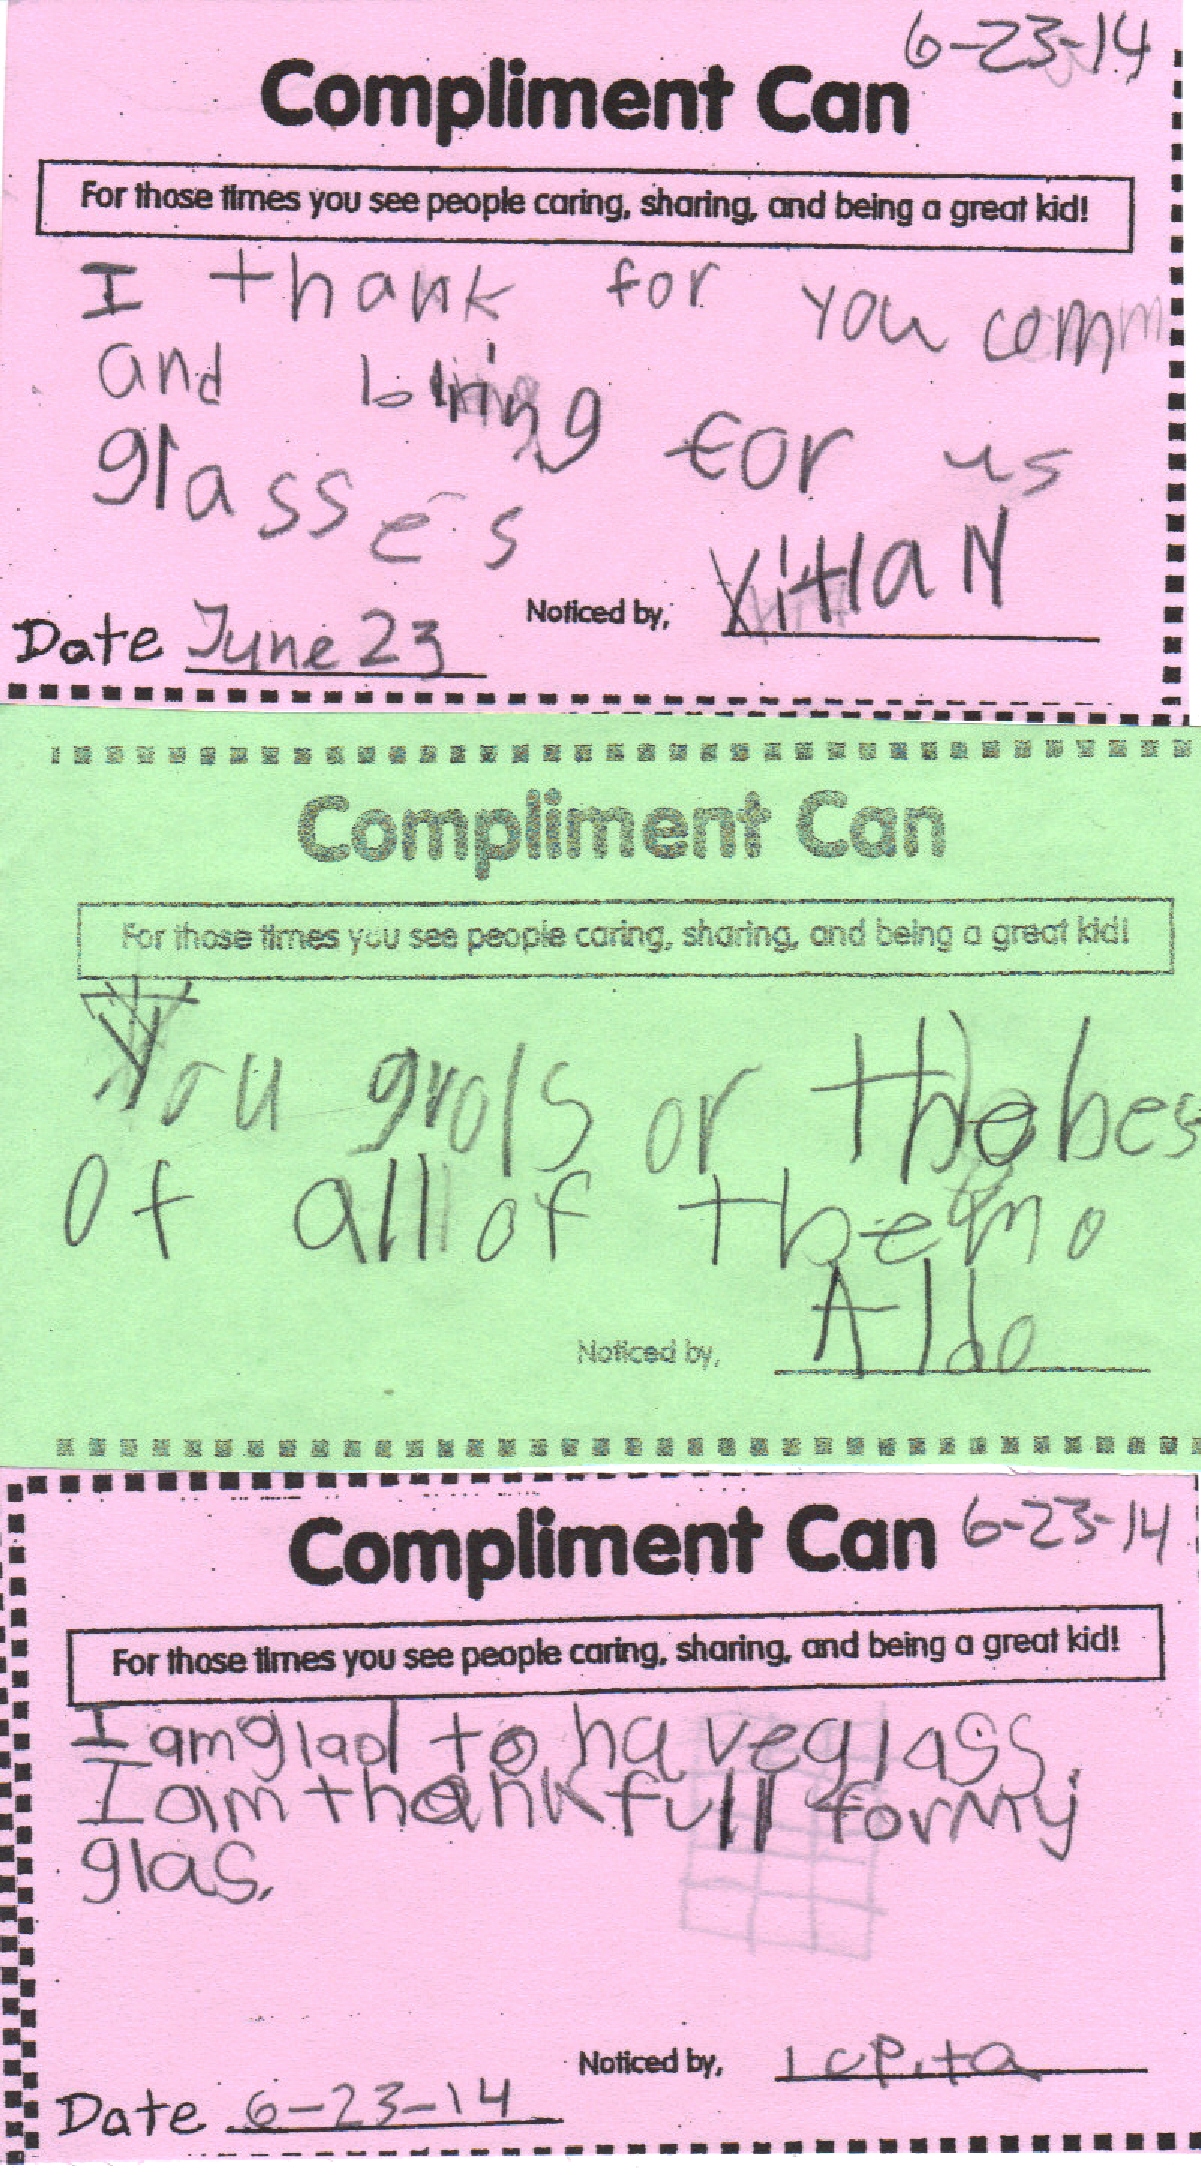 6-23-14
Compliment Can
For those times you see people caring, sharing, and being a great kid!
I thank for you comm
and bring for us
glasses
Noticed by, XitlaN
Date June 23
Compliment Can
For those times you see people caring, sharing, and being a great kid!
You grols or the bes
of all of them o
Noticed by, Aldo
Compliment Can 6-23-14
For those times you see people caring, sharing, and being a great kid!
I am glad to have glass.
I am thankfull for my
glas.
Noticed by, lupita
Date 6-23-14